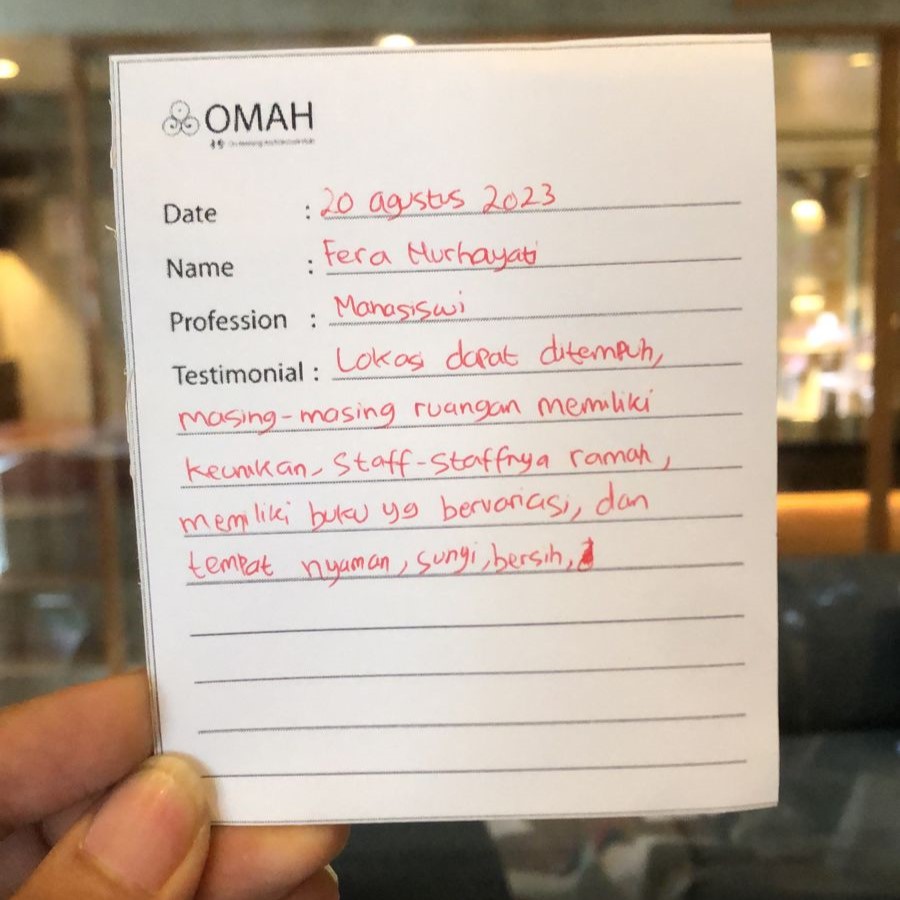 OMAH
Date : 20 agustus 2023
Name : Fera Nurhayati
Profession : Mahasiswi
Testimonial : Lokasi dapat ditempuh,
masing-masing ruangan memiliki
keunikan, Staff-staffnya ramah,
memiliki buku yg bervariasi, dan
tempat nyaman, sungi, bersih,